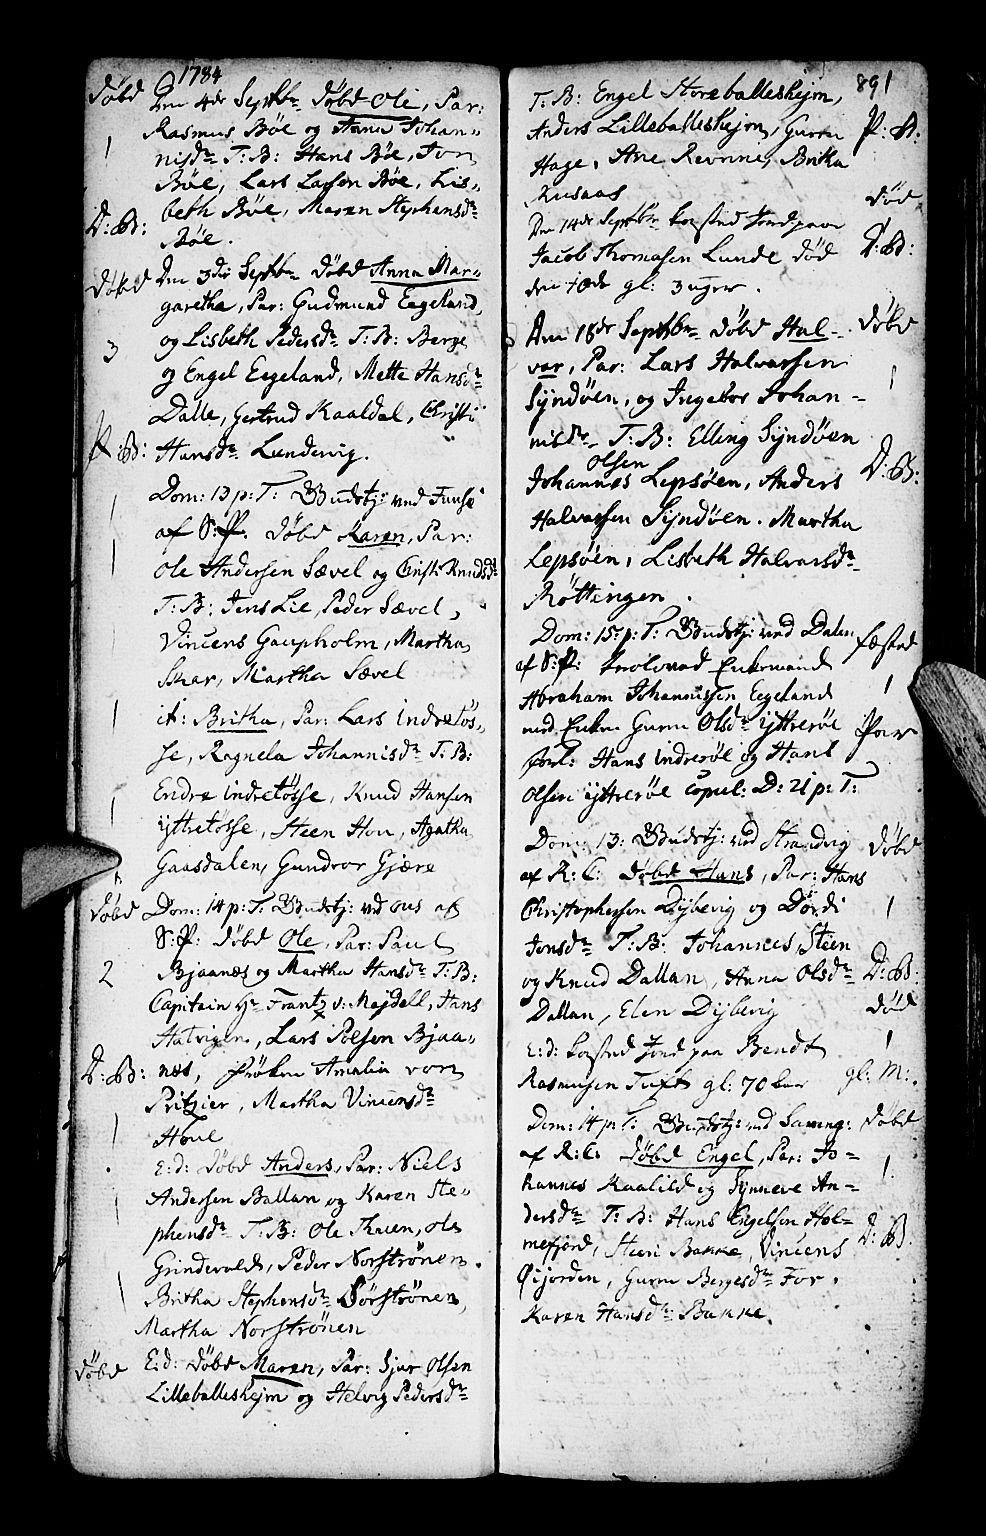 1784
døbd
Den 4de Septbr døbd Ole, Par:
Rasmus Böe og Anna Johan-
1
nisdr T: B: Hans Böe, Jon
Böe, Lars Larsen Böe, Lis-
beth Böe, Maren Stephensdr
D: B:
Böe.
døbd
Den 3die Septbr døbd Anna Mar-
garetha, Par: Gudmund Eegeland
og Lisbeth Pedersdr T: B: Berge
3
og Engel Eegeland, Mette Hansdr
Dalle, Gertrud Kaaldal, Christi
P: B:
Hansdr Lundervig.
1
Dom: 13 p: T: Budstj: ved Fuuse
af S: P. døbd Karen, Par:
1
Ole Andersen Sævel og Christi Knudsdr
T: B: Jens Lie, Peder Sævel,
Vincens Gaupholm, Martha
Skar, Martha Sævel
1
it: Britha, Par: Lars indretøs-
se, Ragnela Johannisdr T: B:
1
Endre indretøsse, Knud Hansen
yttretøsse, Steen Hou, Agatha
Gaasdalen, Gundvor Gjære
døbd
Dom: 14 p: T: Budstj: ved Ous af
S: P: døbd Ole, Par: Paul
2
Bjaanæs og Martha Hansdr T: B:
Capitain Hr Frantz v: Majdell, Hans
Hatvigen, Lars Polsen Bjaa-
D: B:
næs, Frøken Amalia von
Pritzier, Martha Vincensdr
1
Houl
E: d: døbd Anders, Par: Niels
1
Andersen Ballan og Karen Ste-
phensdr T: B: Ole Thuen, Ole
Grindevold, Peder Norströnen.
1
Britha Stephensdr Sörströnen,
Martha Norströnen
døbd
E: d: døbd Maren, Par: Sjur Olsen
Lilleballeshejm og Helvig Pedersdr
891
T: B: Engel Storeballeshejm,
Anders Lilleballeshejm, Guru
P: B:
Hage, Ane Revnne, Britha
Rusaas
død
Den 14de Septbr kasted Jord paa
Jacob Thomasen Lunde død
D: B:
den 10de gl: 3 uger.
Den 18de Septbr døbd Hal-
døbd
vor, Par: Lars Halvorsen
1
Syndöen, og Ingebor Johan-
nisdr T: B: Elling Syndöen
Johannes Olsen Lepsöen, Anders
D: B:
Halvorsen Syndöen. Martha
Lepsöen, Lisbeth Halvorsdr
Röttingen.
Dom: 15 p: T: Budstj: ved Dalen
fæsted
af S: P: trolovad Enkemand
Abraham Johannissen Eegeland
1
med Enken Guru Olsdr yttreröe
Par
forl: Hans indreröe og Hans
Olsen yttreröe copul: D: 21 p: T:
Dom: 13: Budstj: ved Strandvig
døbd
af R: C: døbd Hans, Par: Hans
Christophersen Dybevig og Dordi
1
Jonsdr T: B: Johannes, Steen
og Knud Dallan, Anna Olsdr
D: B:
Dallan, Elen Dybevig
død
E: d: kasted Jord paa Bendt
1
Rasmusen Tuft gl: 70 aar
gl: M:
Dom: 14 p: T: Budstj: ved Sæving:
døbd
af R: C: døbd Engel, Par: Jo-
hannes Kaalild og Synneve An-
1
dersdr T: B: Hans Engelsen Hol-
mefjord, Steen Bakke, Vincens
D: B:
Øijorden, Guru Bergesdr For.
Karen Hansdr Bakke.